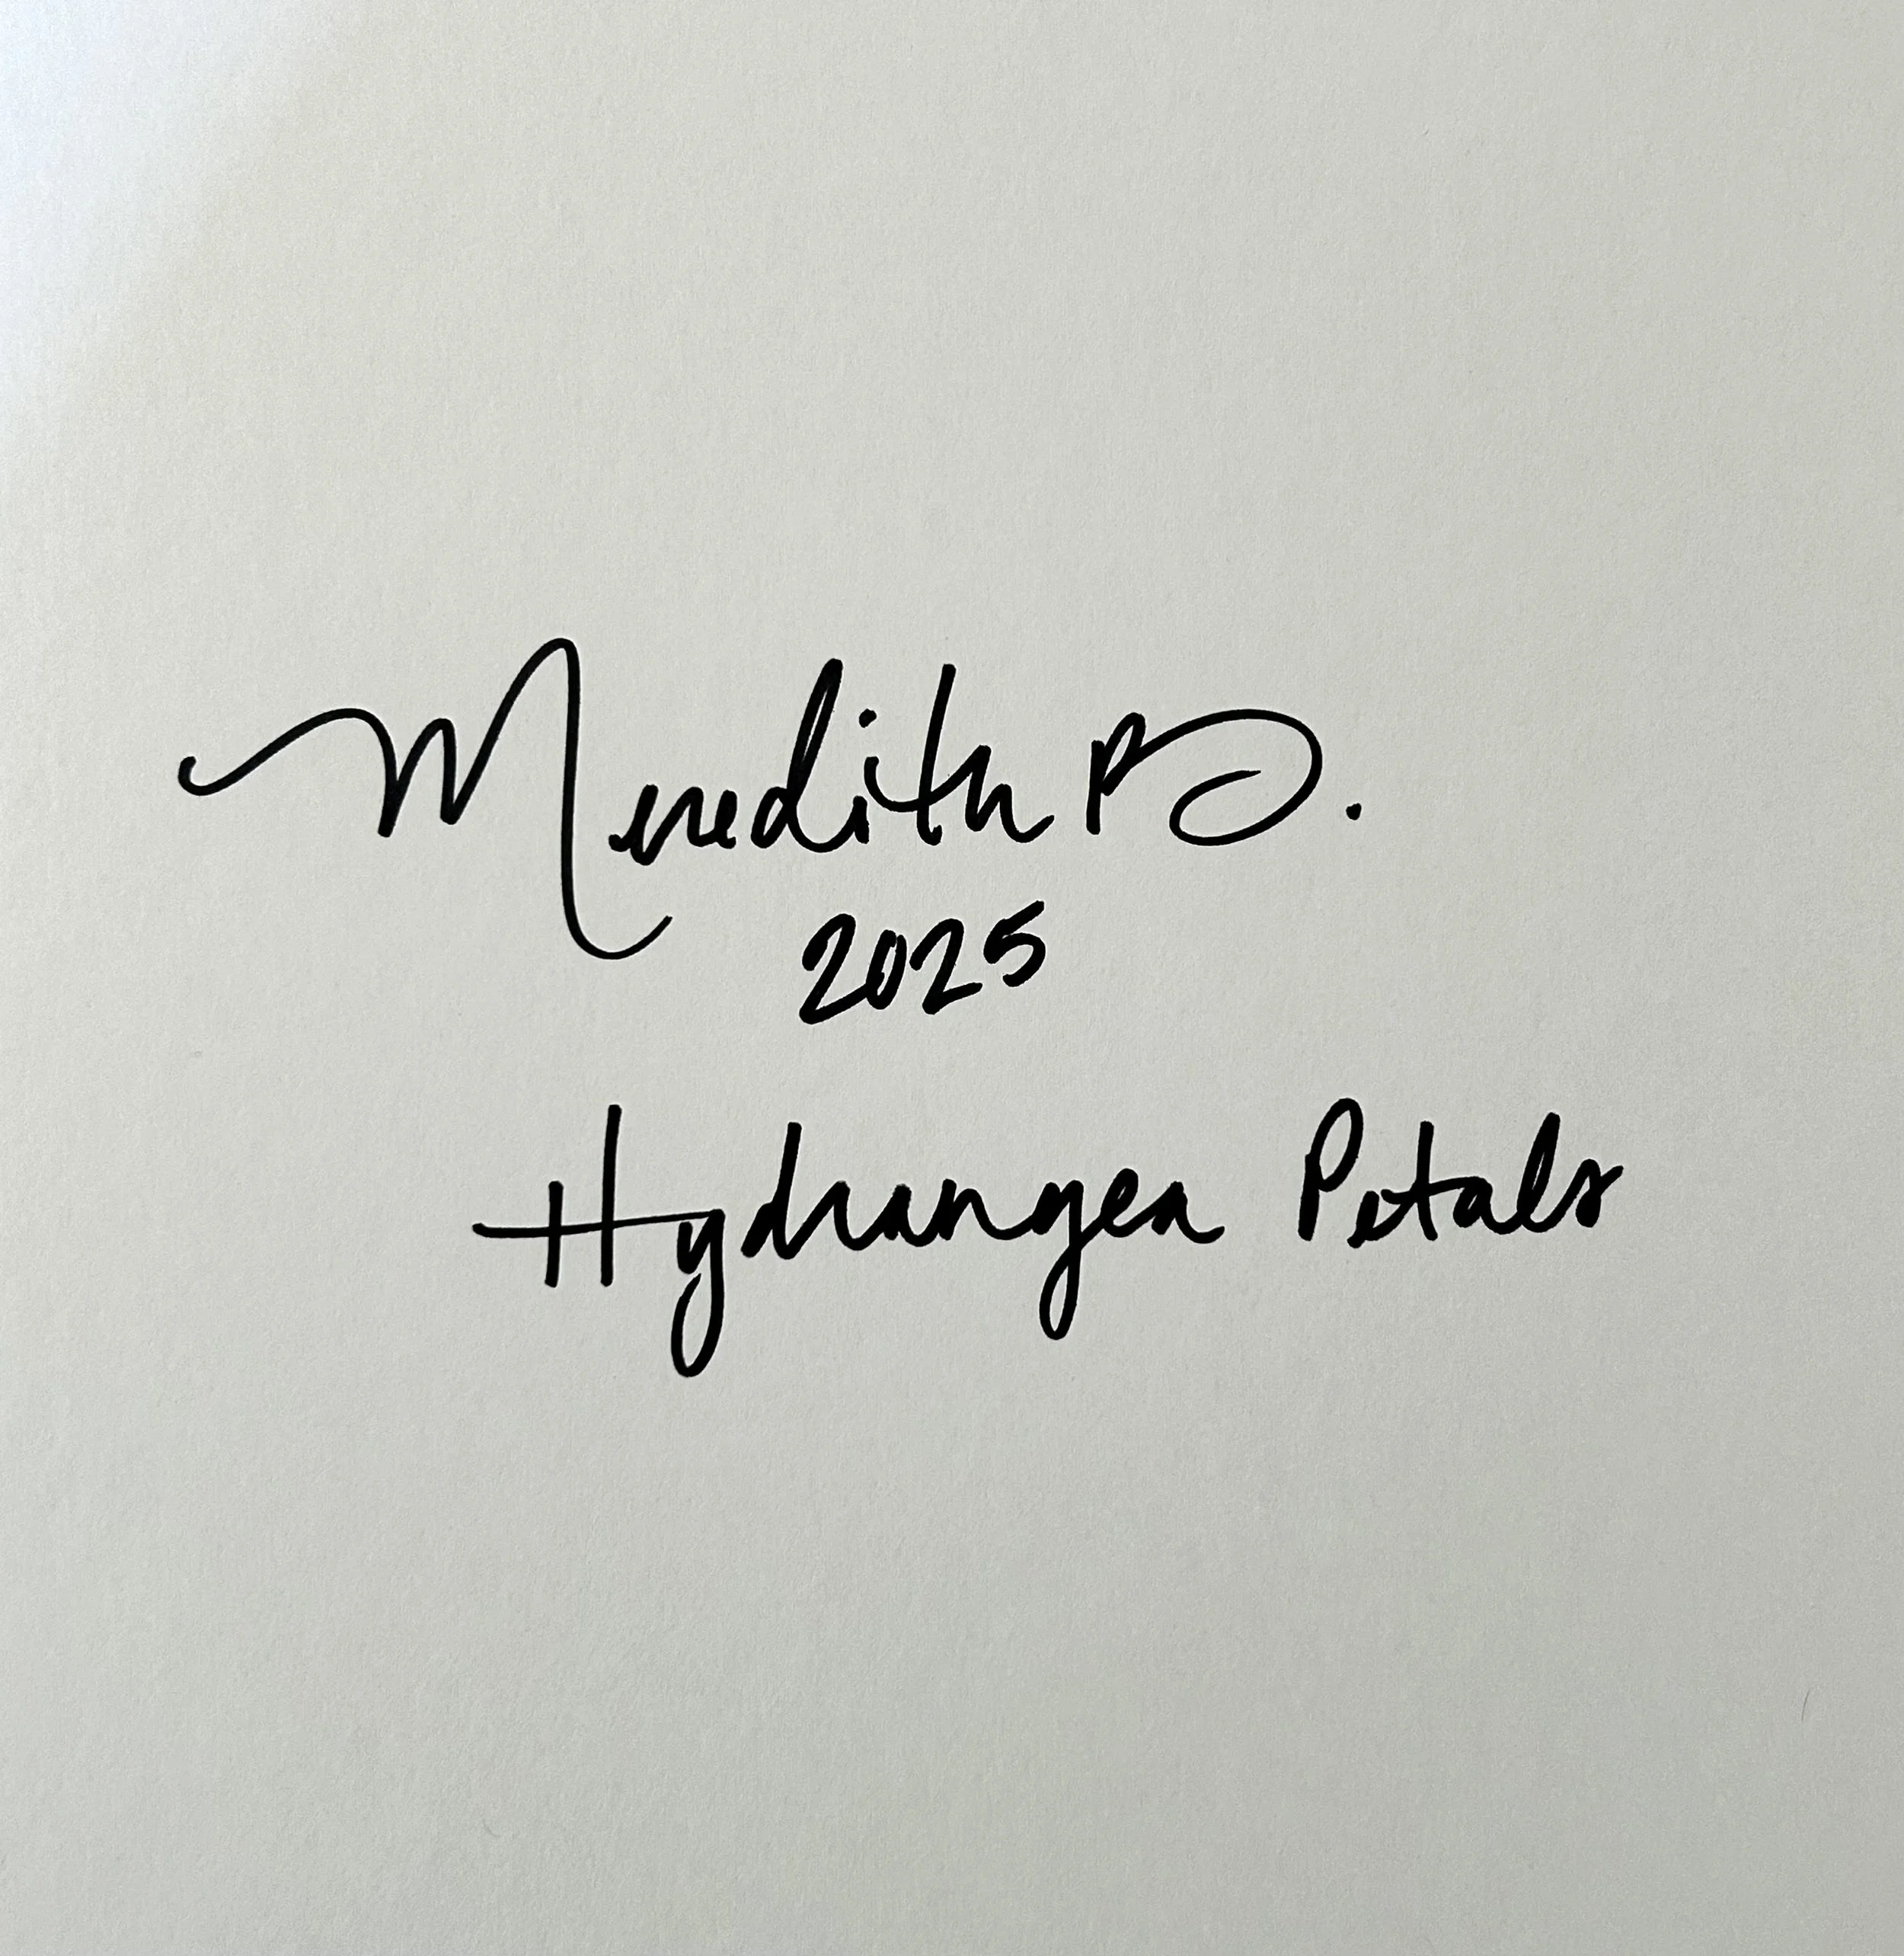 Meredith B.
2025
Hydrangea Petals